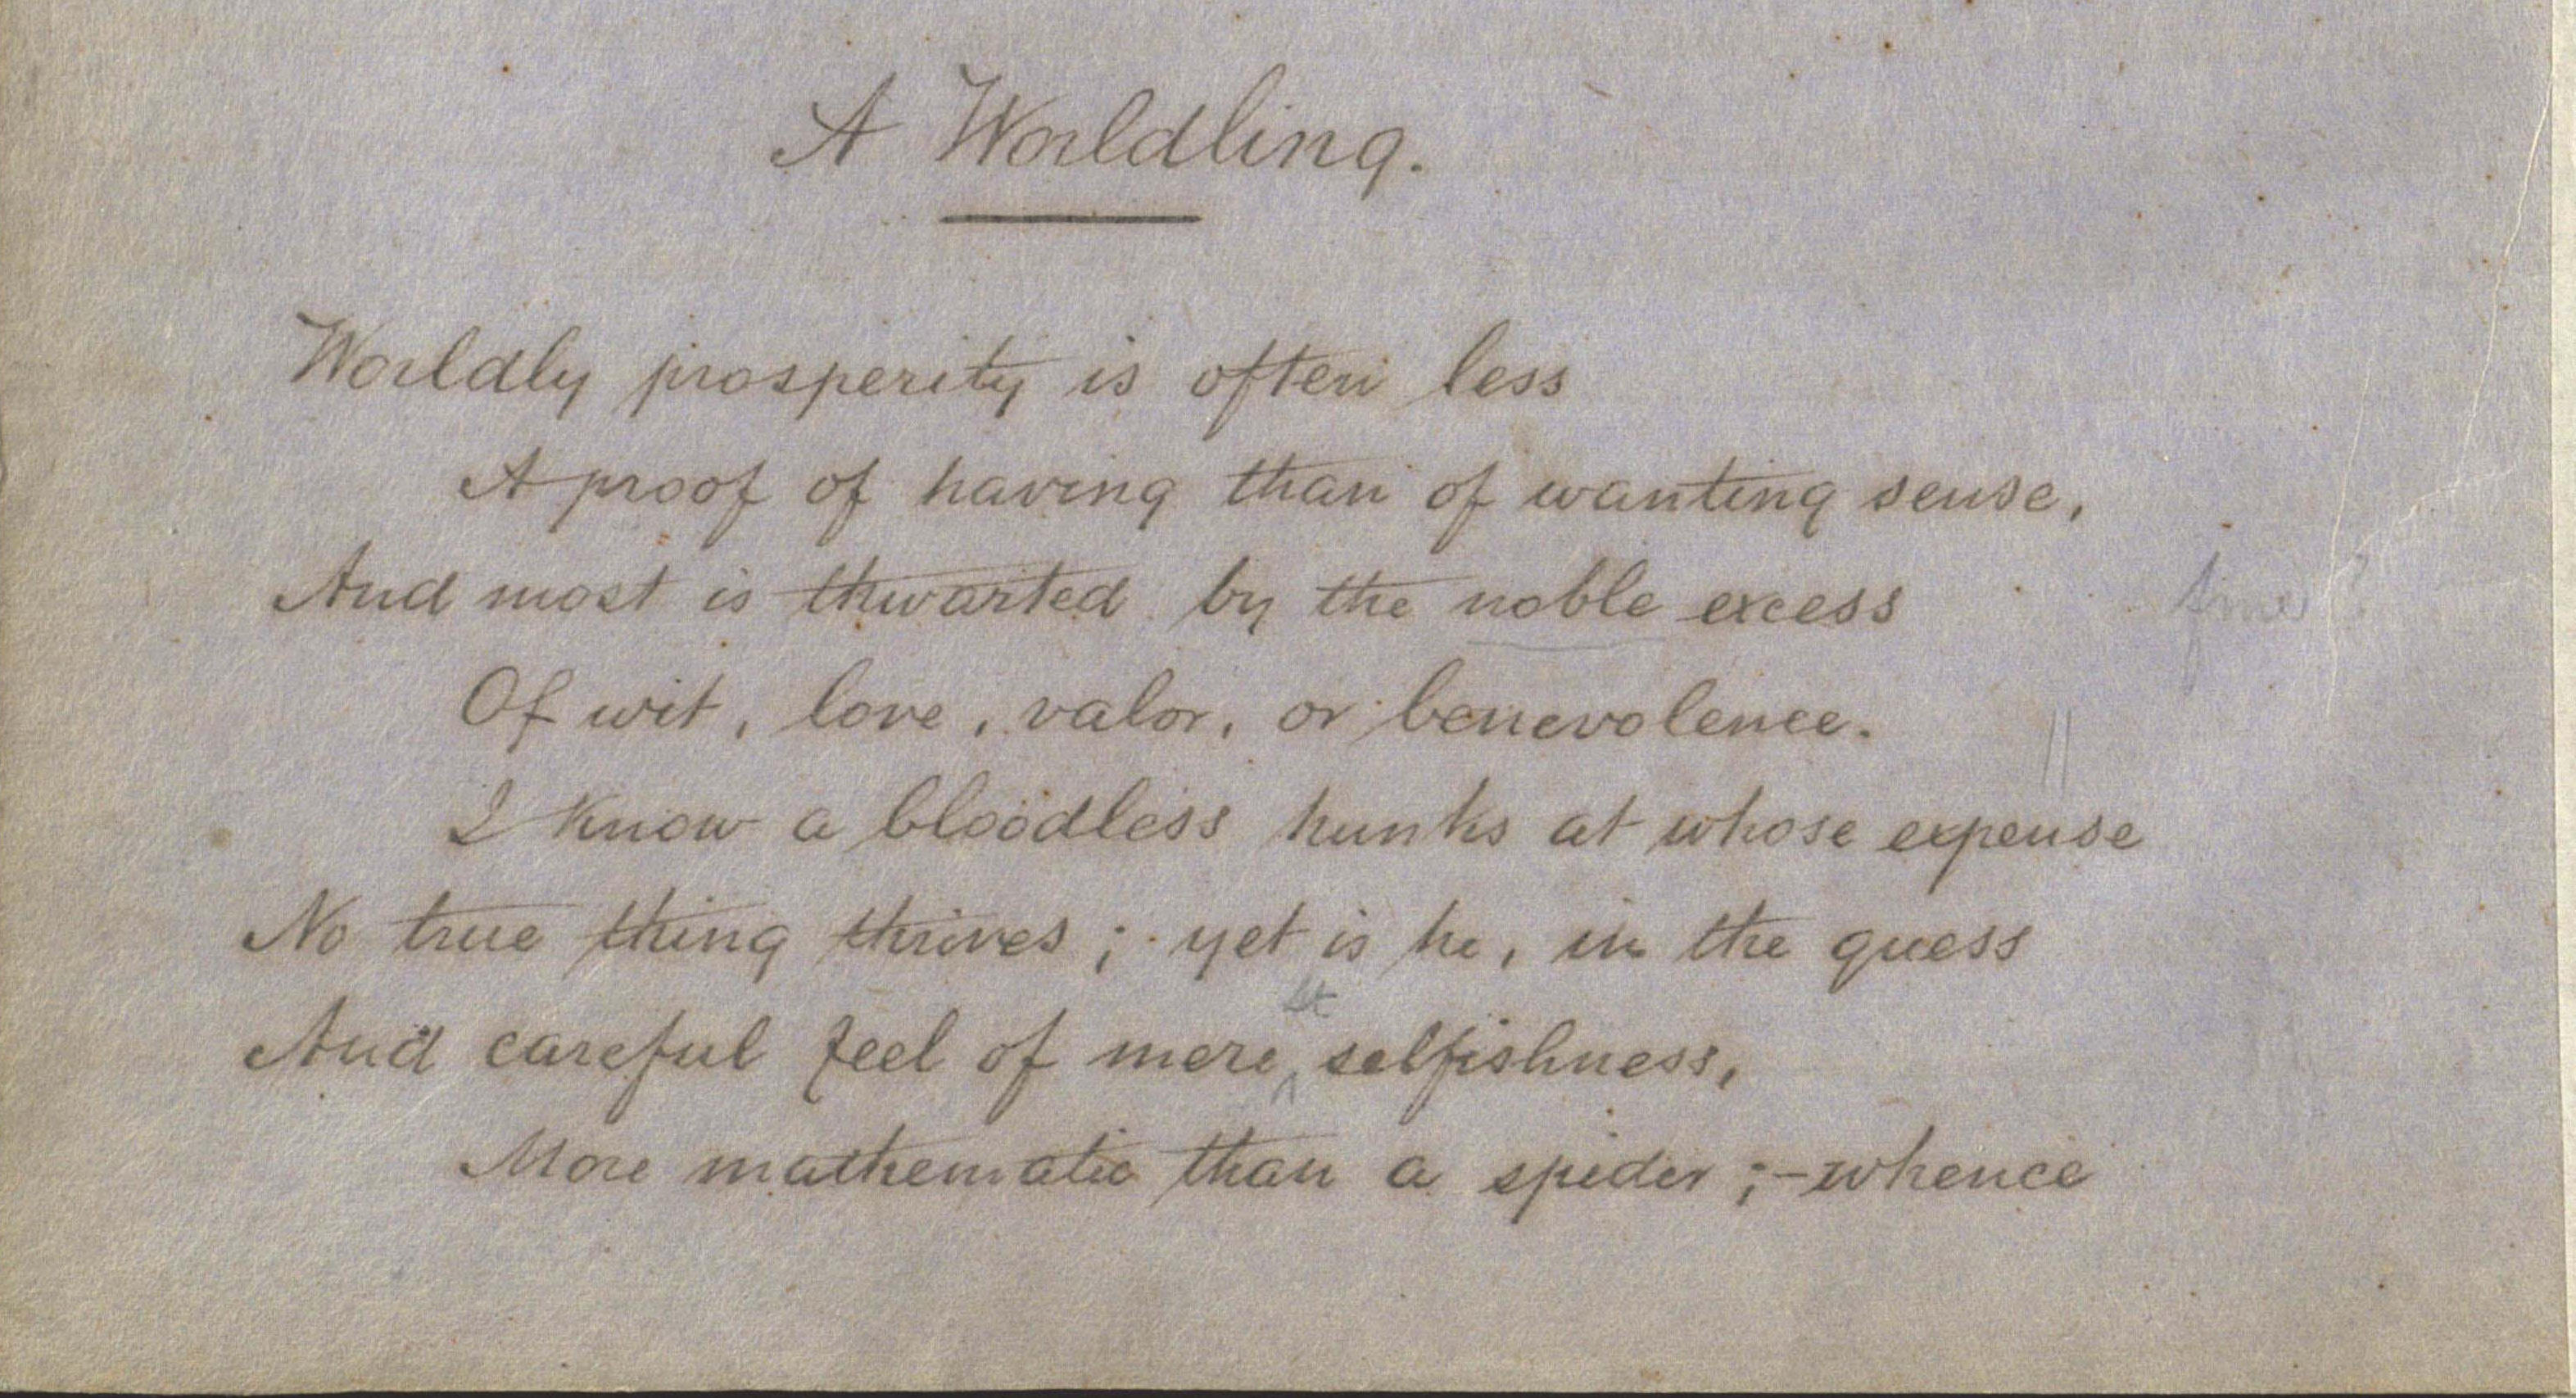 A Worldling.
Worldly prosperity is often less
A proof of having than of wanting sense,
And most is thwarted by the noble excess
Of wit, love, valor, or benevolence.
I know a bloodless hunks at whose expense
No true thing thrives; yet is he, in the guess
And careful feel of mere selfishness,
More mathematic than a spider;—whence